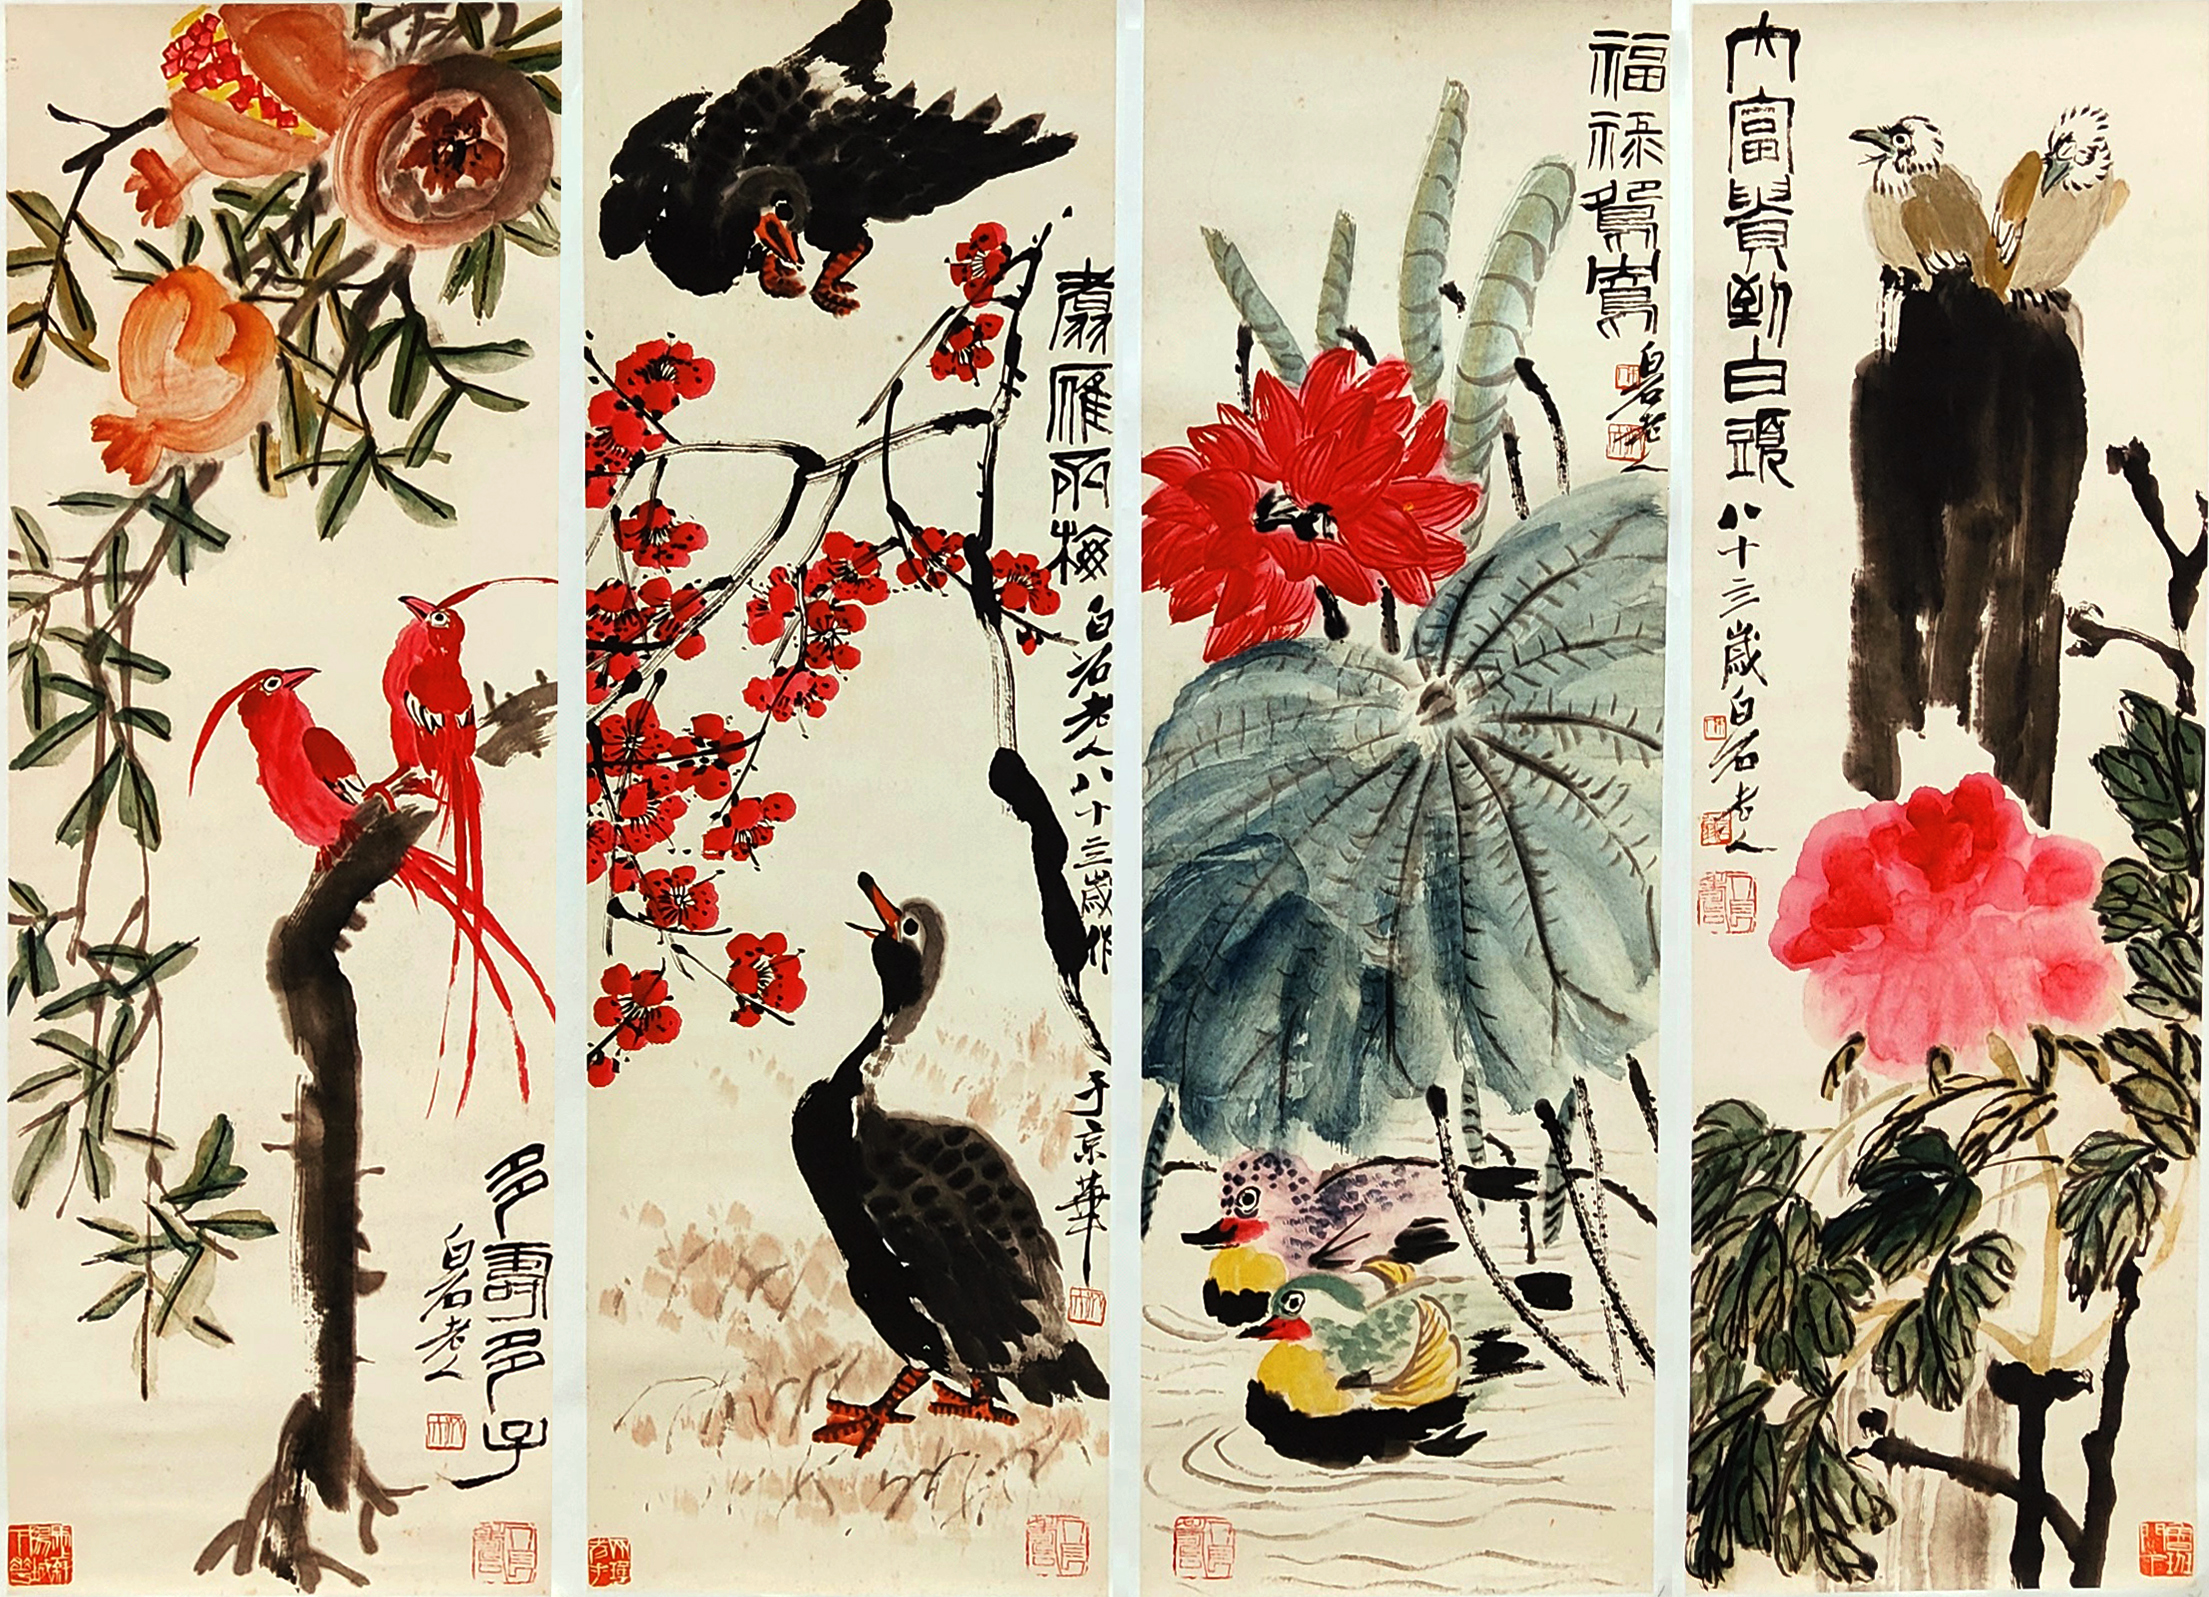 大富貴到白頭 八十三歲白石老人
福祿鴛鴦 白石老人
雁 梅 白石老人八十三歲作于京華
多壽多子
白石老人